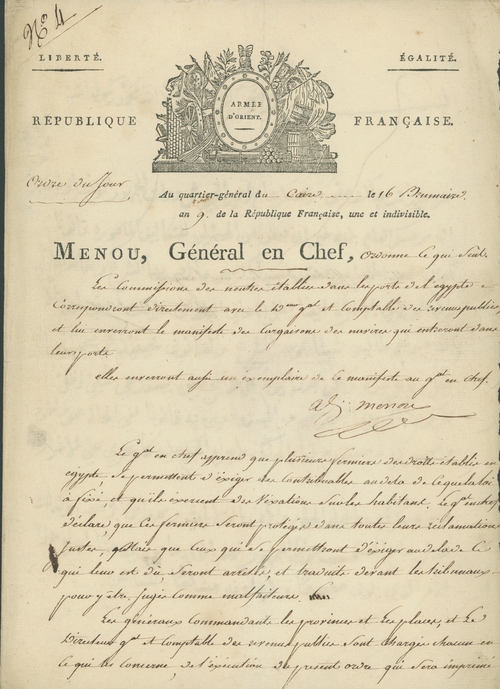 No 4
LIBERTÉ.
ÉGALITÉ.
ARMÉE
D'ORIENT.
RÉPUBLIQUE
FRANÇAISE.
Ordre du Jour
Au quartier-général du Caire le 16 Brumaire
an 9e. de la République Française, une et indivisible.
MENOU, Général en Chef, ordonne ce qui suit.
Les Commissions des neutres établies dans les ports de l'égypte
Correspondront directement avec le D. gal et Comptable des revenus publics
et lui enverront le manifeste des Cargaisons des navires qui entreront dans
leurs ports
elles enverront aussi un exemplaire de ce manifeste au gal en chef.
menou
Le gal en chef apprend que plusieurs fermiers des droits établis en
egypte se permettent d'exiger des Contribuables au dela de ce que la loi
a fixé, et qu'ils exercent des vexations sur les habitants. Le gal en chef
déclare que ces fermiers seront protégés dans toutes leurs réclamations
justes, que ceux qui se permettront d'exiger au dela de ce
qui leur est dû, seront arrêtés, et traduits devant les tribunaux
pour y être jugés comme malfaiteurs.
Les généraux Commandants les provinces et les places, et le
Directeur gal et comptable des revenus publics sont chargés chacun en
ce qui les concerne, de l'exécution du présent ordre qui sera imprimé